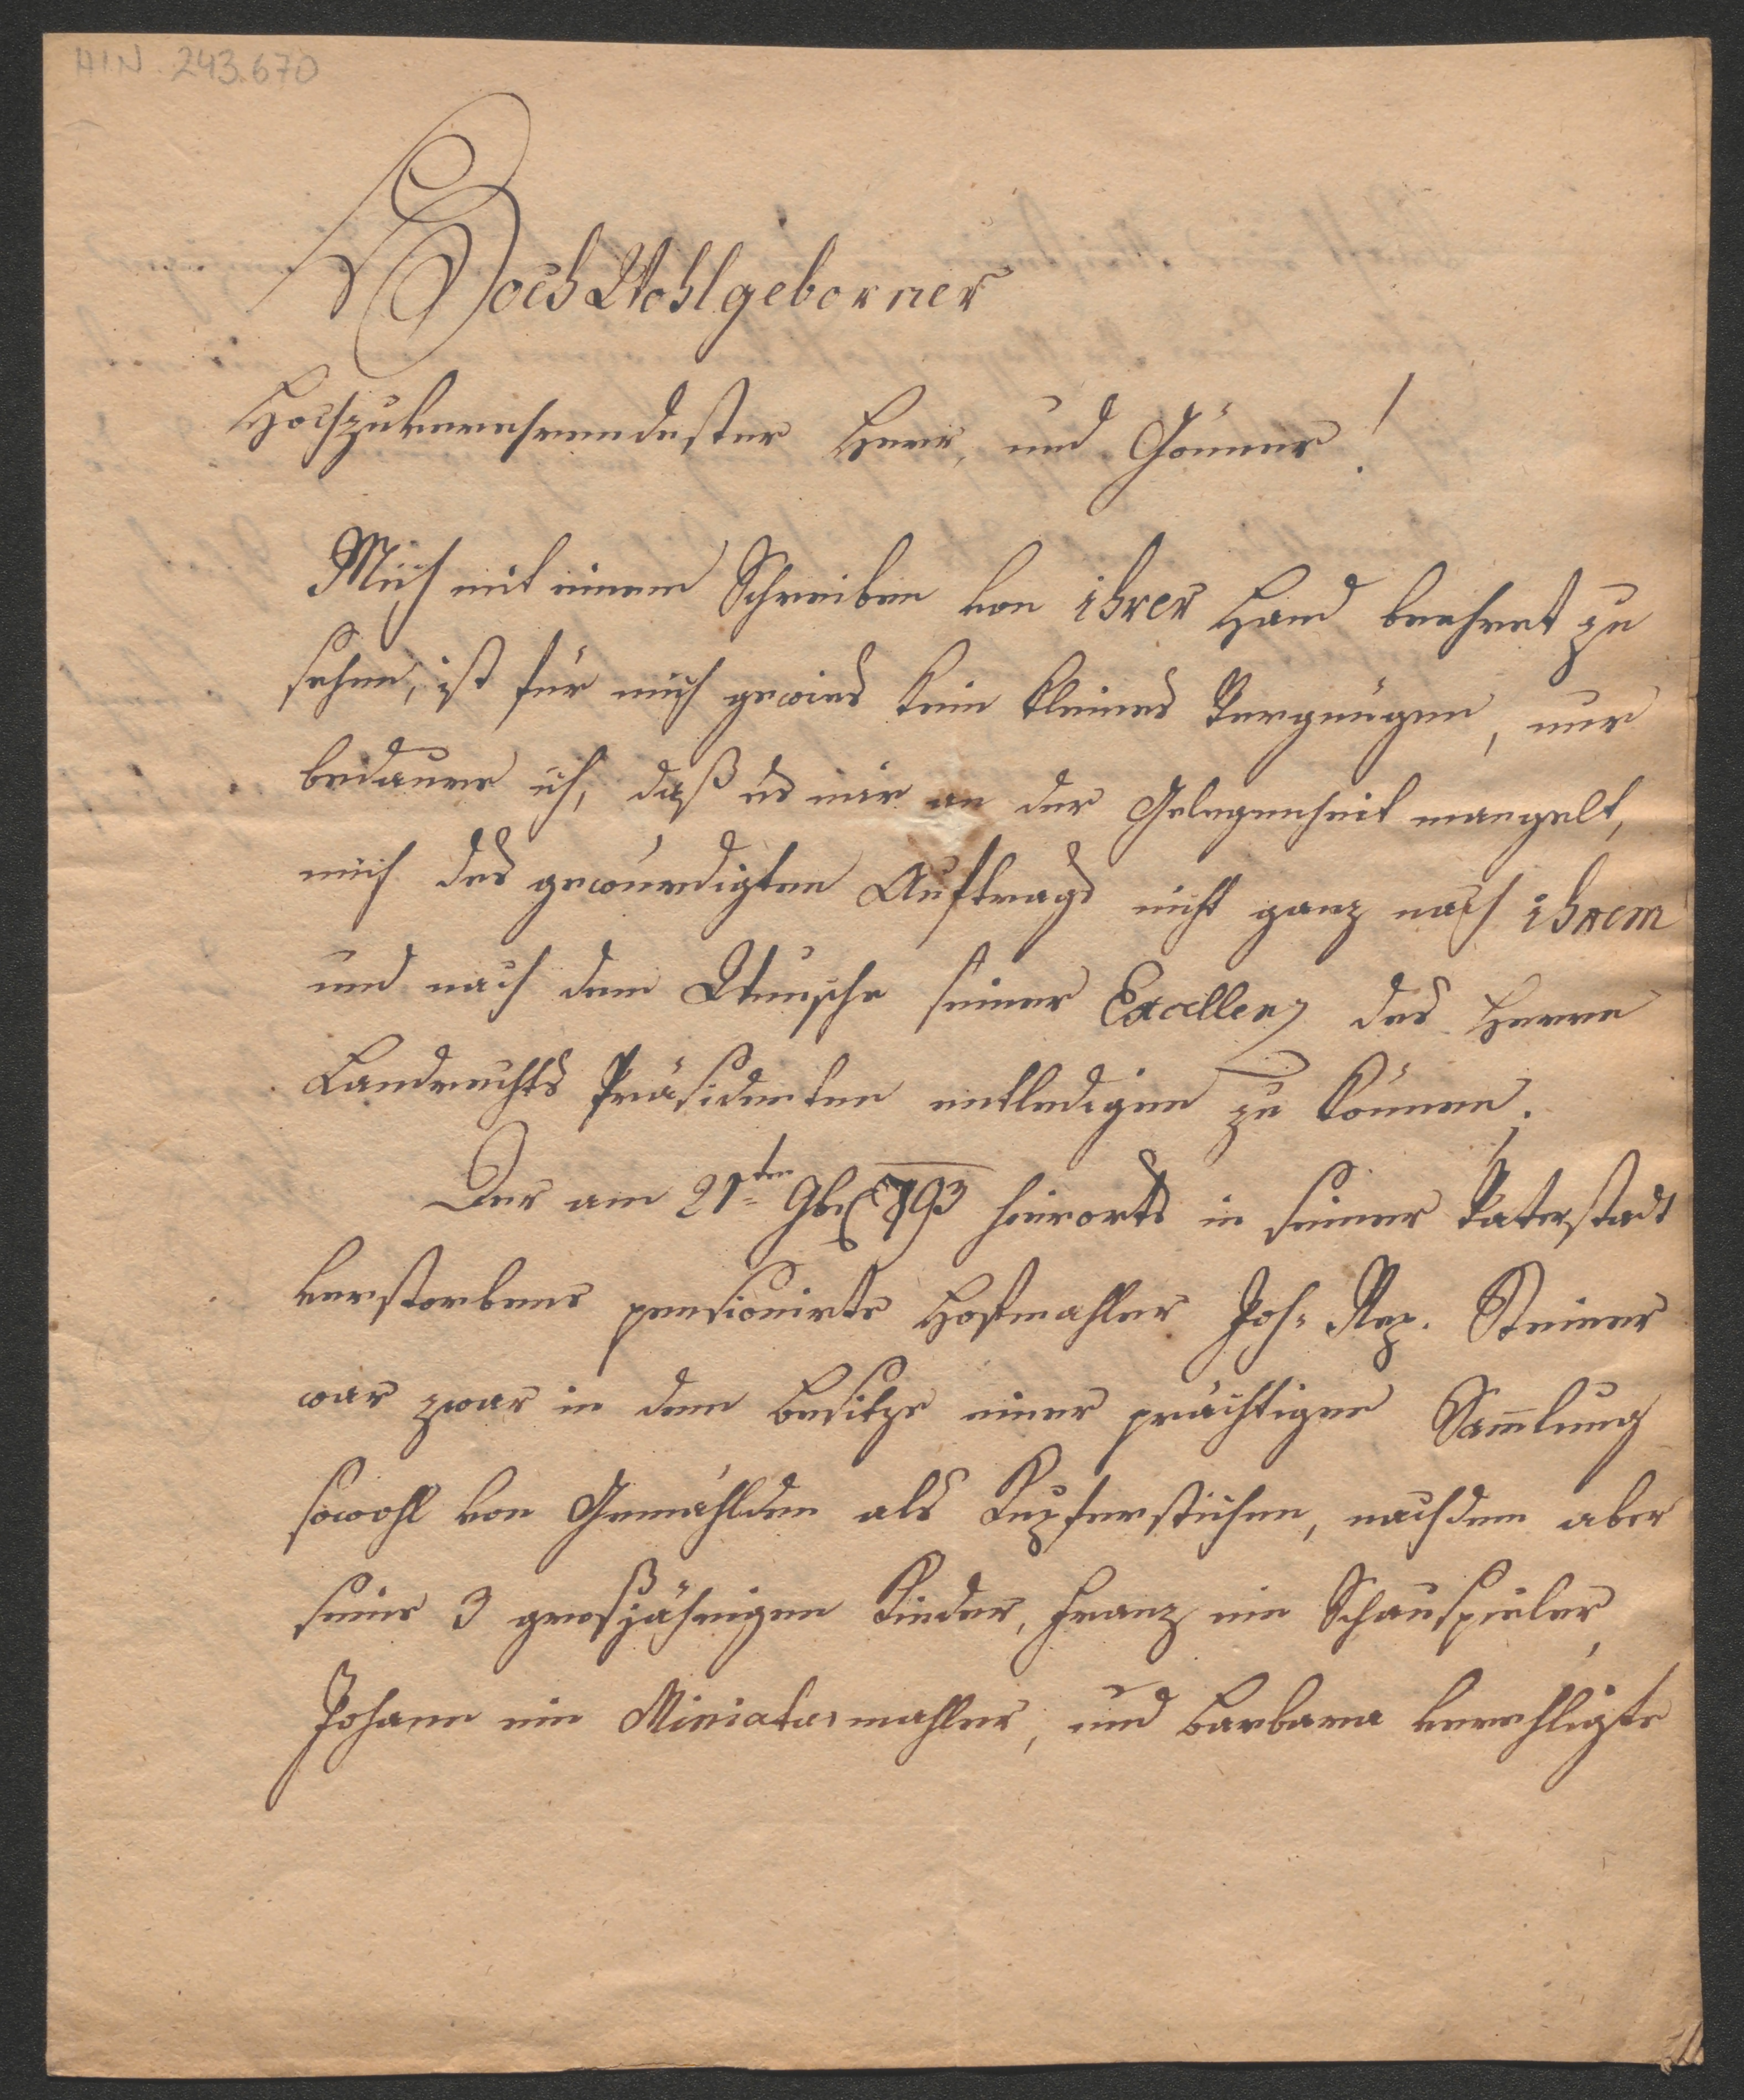 HIN. 243.670
HochWohlgeborner
Hochzuverehrendester Herr, und Gönner!
Mich mit einem Schreiben von ihrer Hand beehret zu
sehen, ist für mich gewies kein kleines Vergnügen, nur
bedaure ich, daß es mir an der Gelegenheit mangelt,
mich des gewürdigten Auftrags nicht ganz nach ihrem
und nach dem Wunsche seiner Excellenz des Herrn
Landrechts Präsidenten entledigen zu können.
Der am 21ten 9br 793 hierorts in seiner Vaterstadt
verstorbene pensionirte Hofmahler Joh: Nep. Steiner
war zwar in dem Besitze einer prächtigen Sam̄lung
sowohl von Gemählden als Kupferstichen, nachdem aber
seine 3 grosjährigen Kinder, Franz ein Schauspieler,
Johann ein Miniaturmahler, und Barbara verehligte